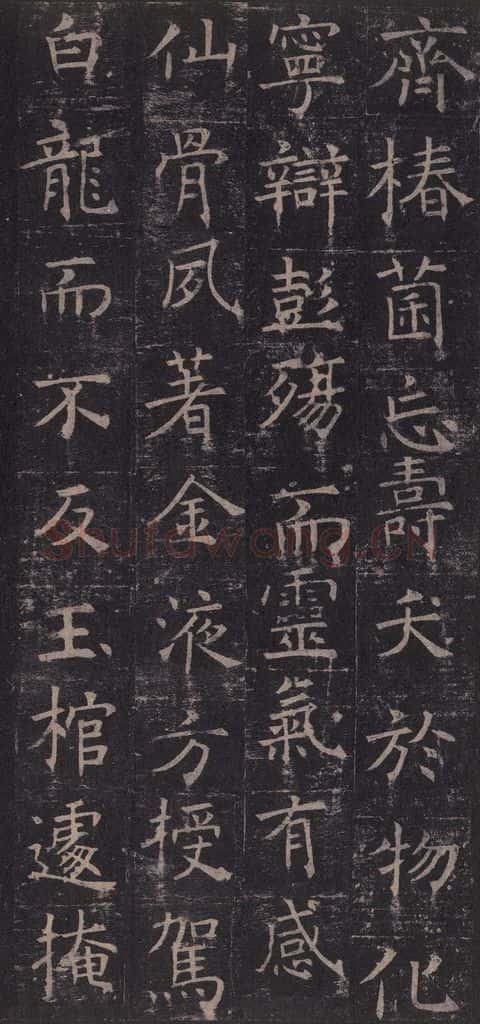 齊椿菌忘壽夭於物化
寧辯彭殤而靈氣有感
仙骨夙著金液方授駕
白龍而不反玉棺遽掩
Shufawang.CN